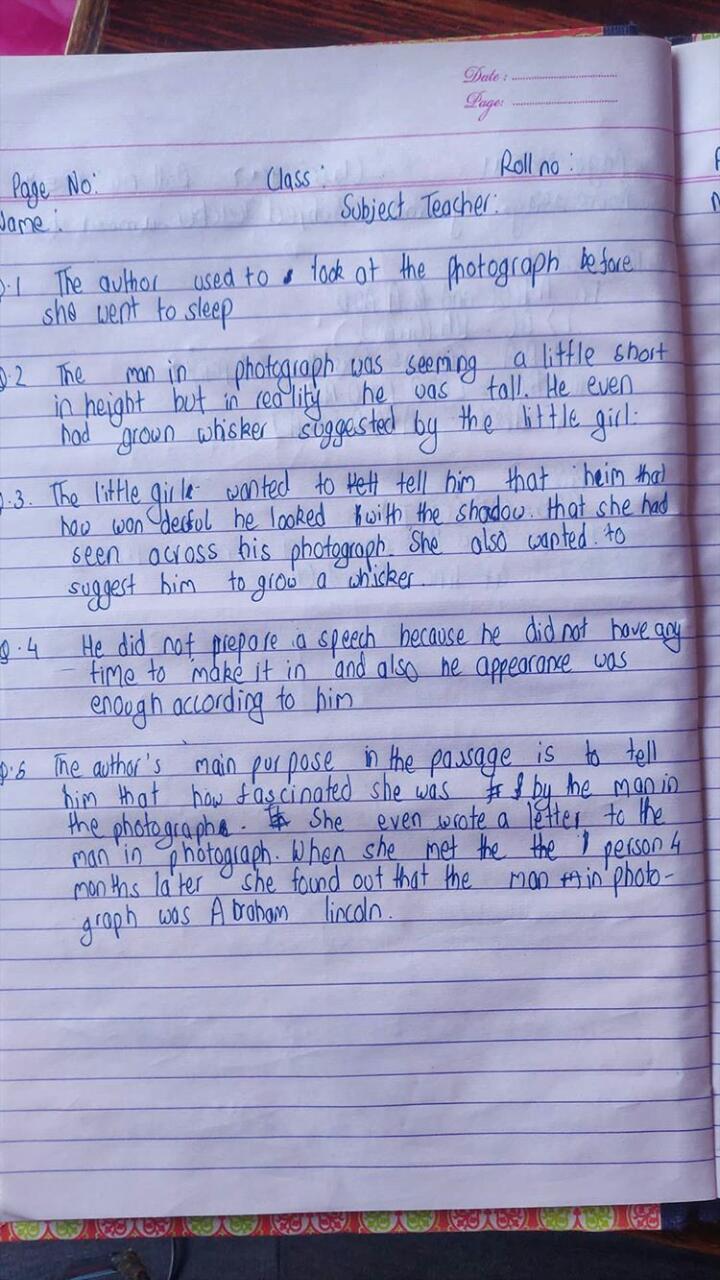 Date :
Page:
Page No: Class : Roll no :
Name : Subject Teacher:
Q.1 The author used to look at the photograph before
she went to sleep
Q.2 The man in photograph was seeming a little short
in height but in reality he was tall. He even
had grown whisker suggested by the little girl.
Q.3. The little girl wanted to tell him that heim that
how wonderful he looked with the shadow. that she had
seen across his photograph. She also wanted. to
suggest him to grow a whisker.
Q.4 He did not prepare a speech because he did not have any
time to make it in and also he appearance was
enough according to him
Q.5 The author's main purpose in the passage is to tell
him that how fascinated she was by the man in
the photograph. She even wrote a letter to the
man in photograph. When she met the the person 4
months later she found out that the man in photo-
graph was Abraham lincoln.